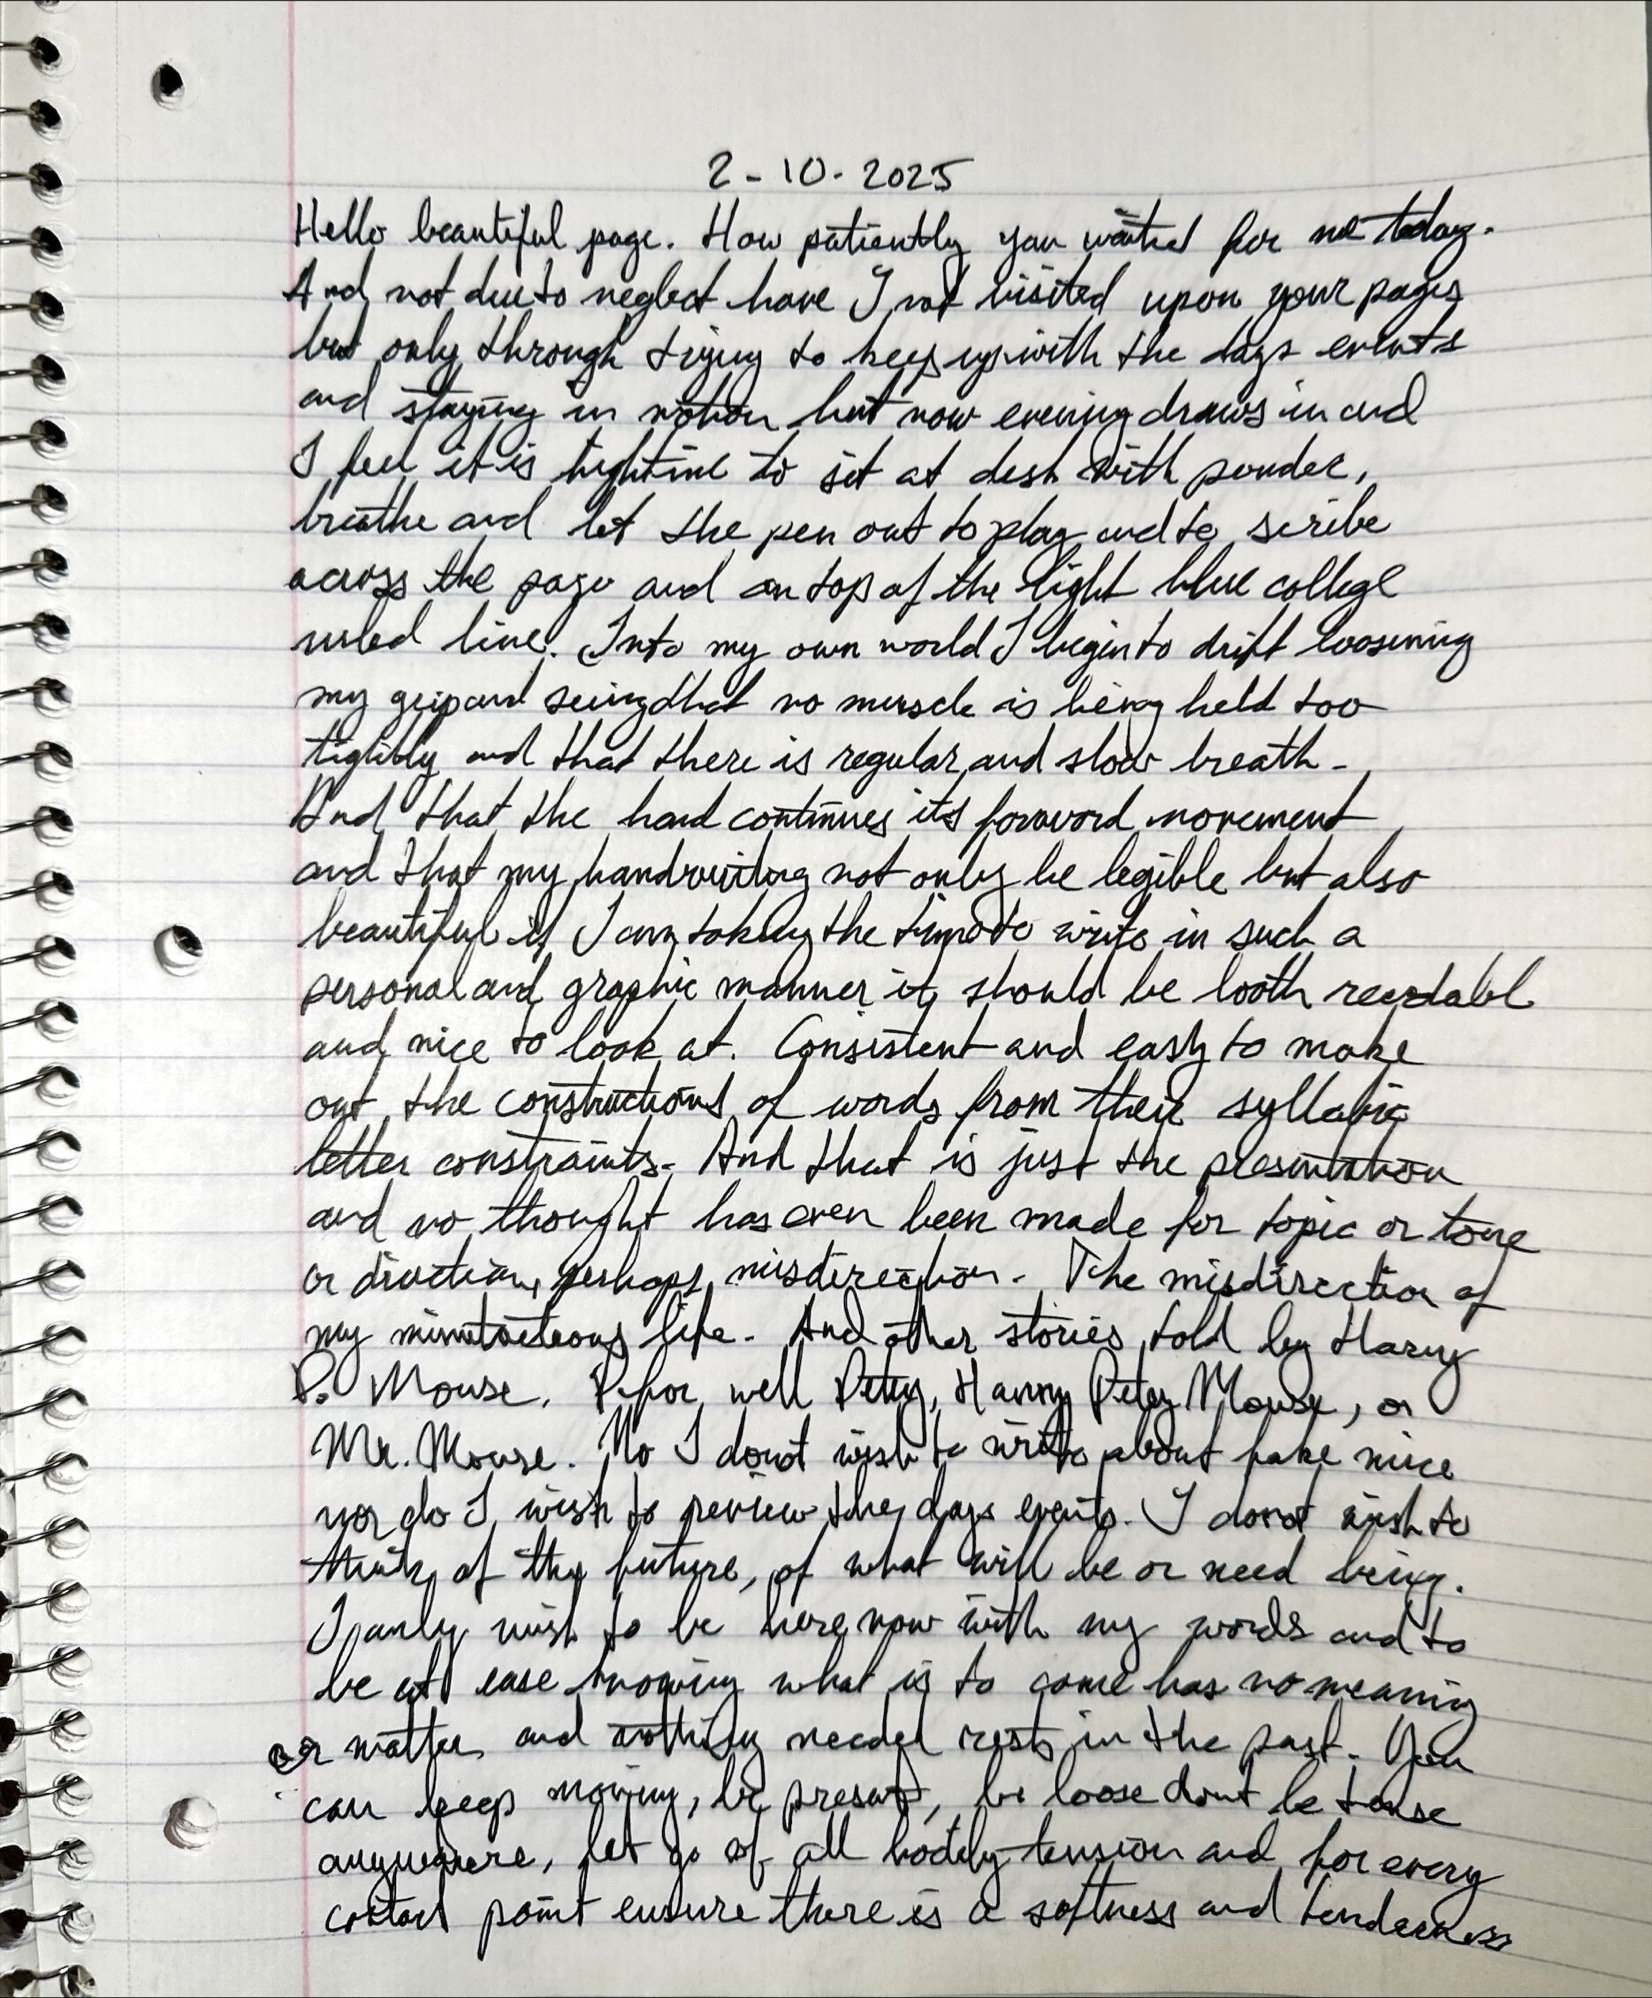 2-10-2025
Hello beautiful page. How patiently you waited for me today.
And not due to neglect have I not visited upon your pages
but only through trying to keep up with the days events
and staying in motion but now evening draws in and
I feel it is hightime to sit at desk with ponder,
breathe and let the pen out to play and to scribe
across the page and on top of the light blue college
ruled line. Into my own world I begin to drift loosening
my grip and seeing that no muscle is being held too
tightly and that there is regular and slow breath.
And that the hand continues its forward movement
and that my handwriting not only be legible but also
beautiful if I am taking the time to write in such a
personal and graphic manner it should be both readabl
and nice to look at. Consistent and easy to make
out the constructions of words from their syllabic
letter constraints. And that is just the presentation
and no thought has even been made for topic or tone
or direction, perhaps misdirection. The misdirection of
my life. And other stories told by Harry
P. Mouse. P. for well Petey, Harry Petey Mouse, or
Mr. Mouse. No I donot wish to write about fake mice
nor do I wish to review the days events. I donot wish to
think of the future, of what will be or need being.
I only wish to be here now with my words and to
be at ease knowing what is to come has no meaning
or matter and nothing needed rests in the past. You
can keep moving, be present, be loose dont be tense
anywhere, let go of all bodily tension and for every
contact point ensure there is a softness and tenderness